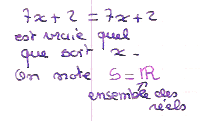 7x + 2 = 7x + 2
est vraie quel
que soit x.
On note S = ℝ
ensemble des
réels